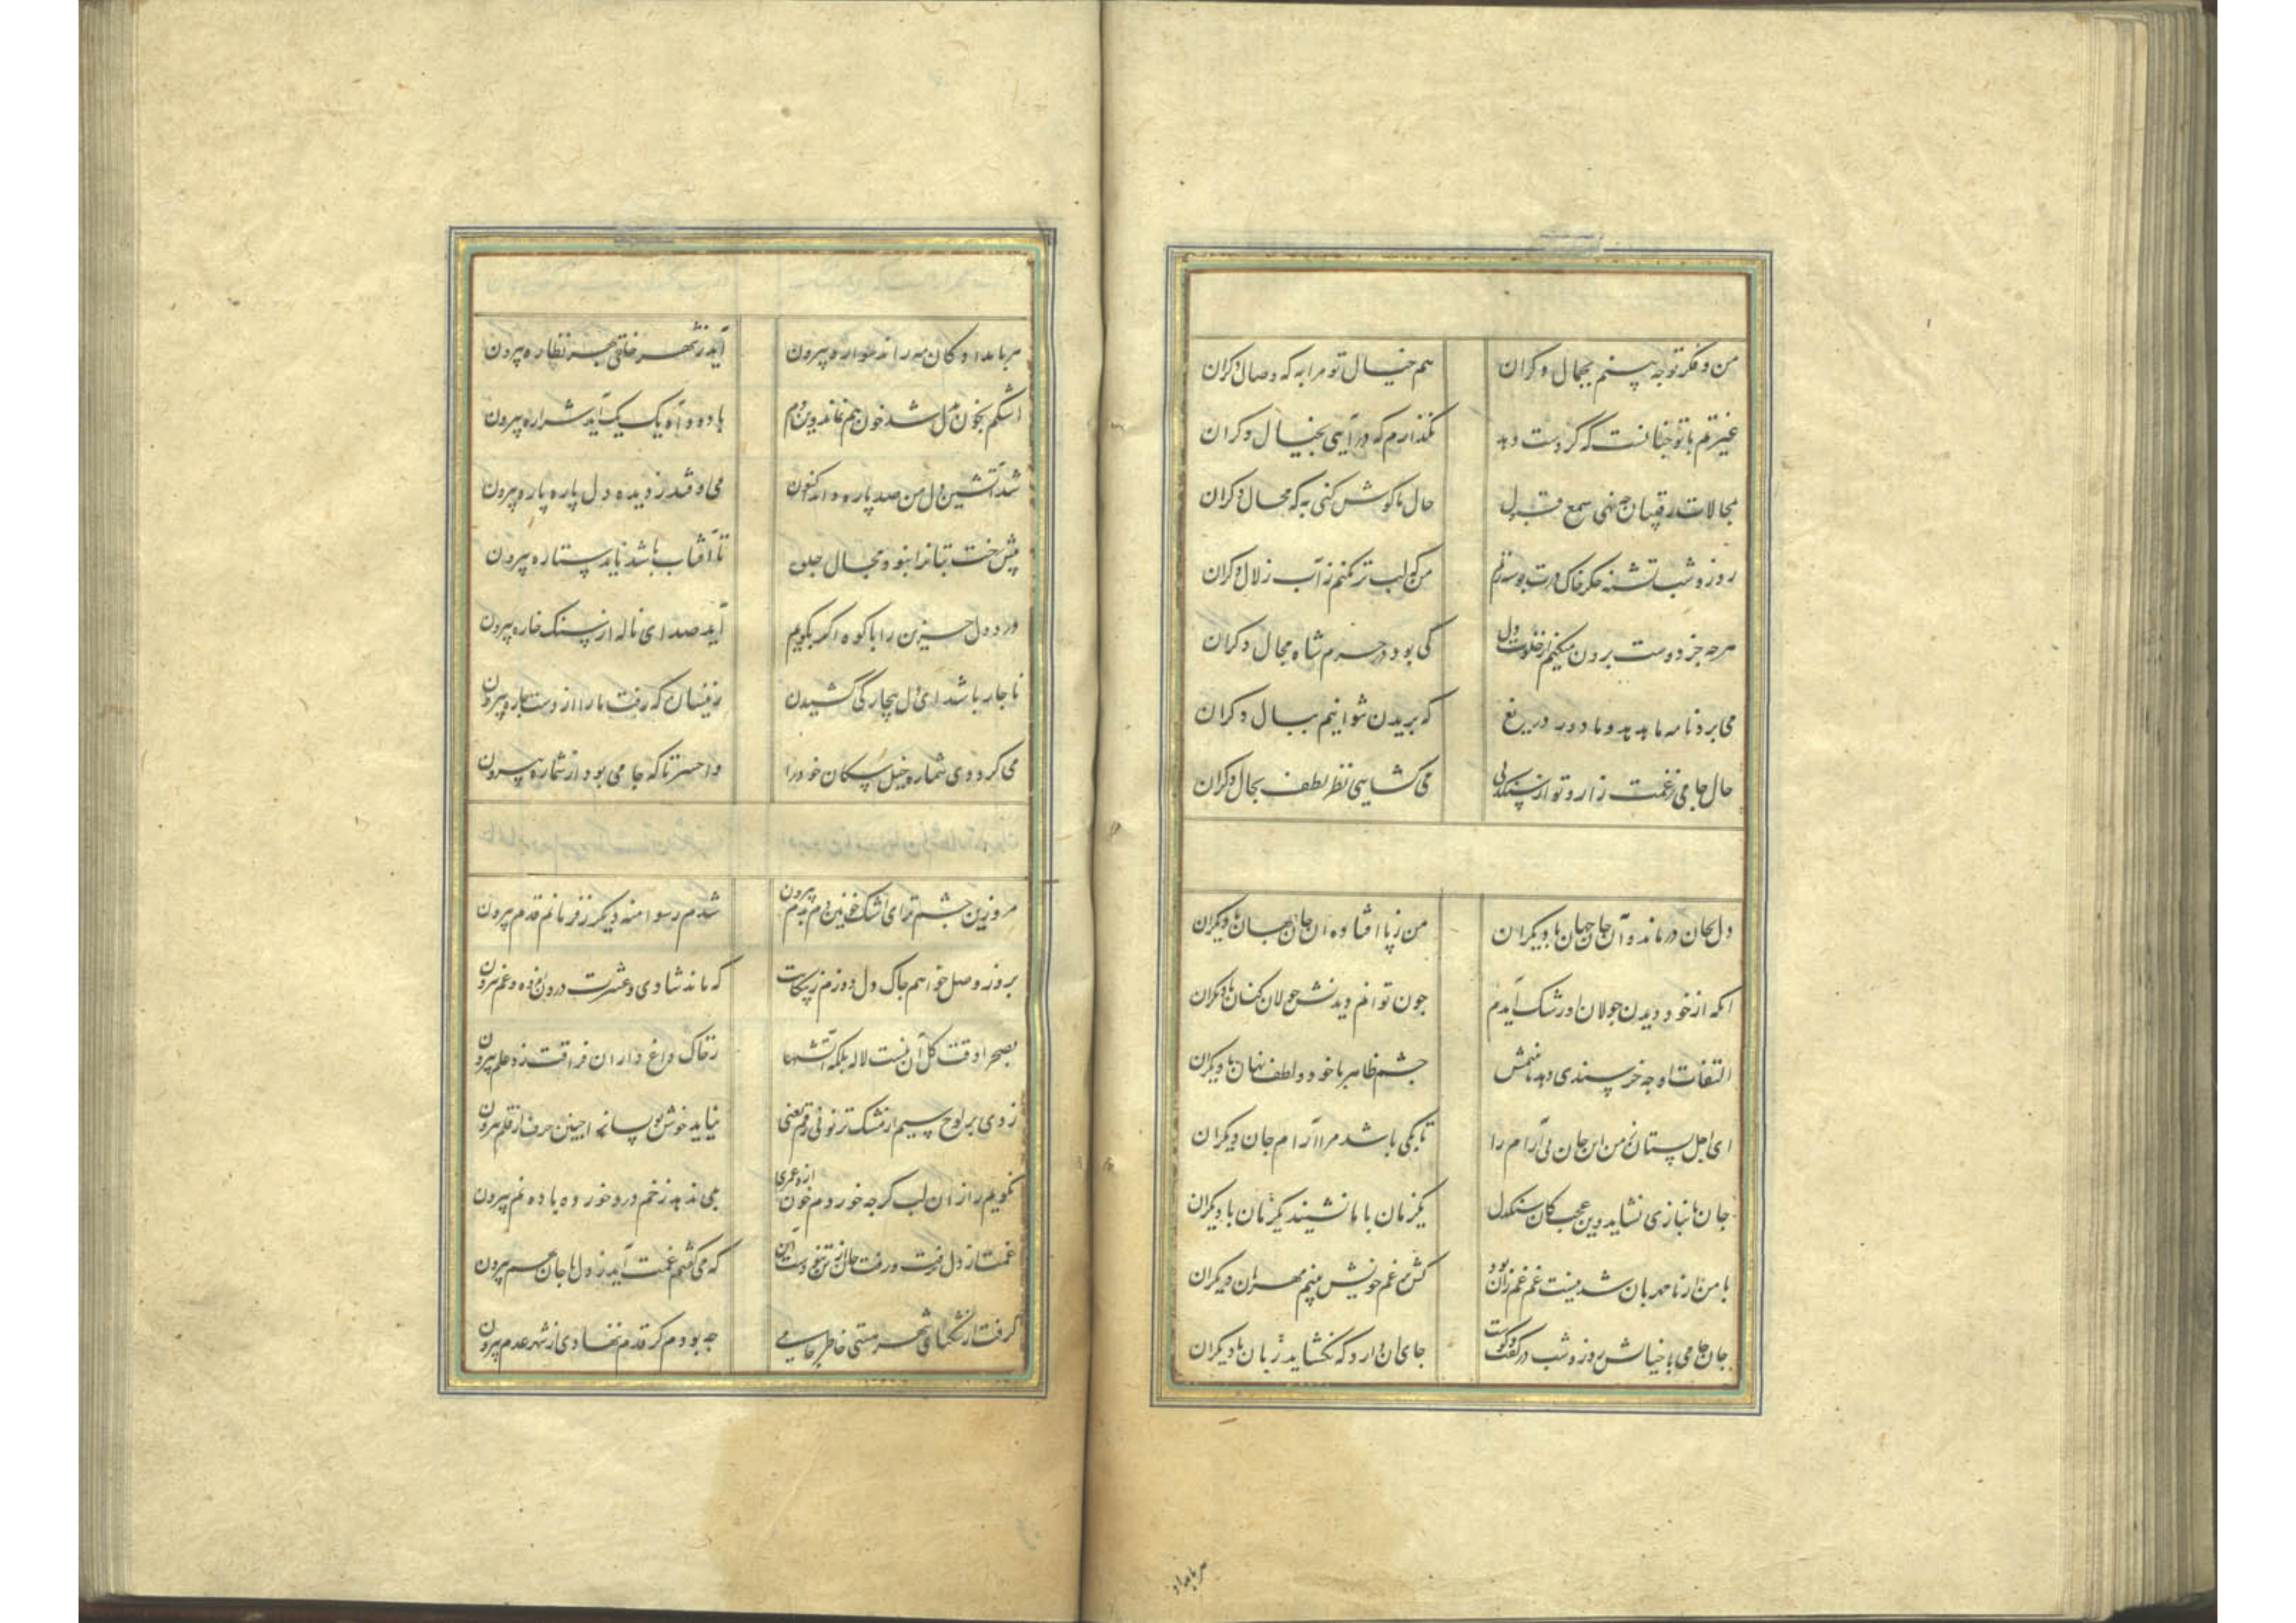 من و فکر تو چه بینم بجمال دکران هم خیال تو مرا به که وصال دکران
غیرتم با تو چنانست که گر دست دهد نگذارم که در آیی بخیال دکران
مقالات رقیبان چه نهی سمع قبول حال ما گوش کنی به که محال دکران
روز و شب تشنه جگر خاک درت بوسه زنم من که لب تر نکنم ز آب زلال دکران
هرچه جز دوست برون میکنم از خلوت دل کی بود در حرم شاه مجال دکران
می برد نامه ما هدهد و ما دور دریغ که پریدن نتوانیم ببال دکران
حال جامی ز غمت زار و تو از سنگدلی می کشایی نظر لطف بحال دکران
دل بجان درماند و آن جان جهان با دیگران من ز پا افتاده آن جان جهان با دیگران
آنکه از خود دیدن جولان او رشک آیدم چون توانم دیدنش جولان کنان با دیگران
التفات او چه خرسندی دهد ما منش چشم ظاهر با خود و لطف نهان با دیگران
ای اجل بستان ز من این جان بی آرام را تا بکی باشد مرا آرام جان دیگران
جان ما نیازی نشاید وین عجب کان سنگدل یکزمان با ما نشیند یکزمان با دیگران
با من ار نامهربان شد نیست غم غم زان بود کش غم خویش بینم مهربان دیگران
جان جامی با خیالش روز و شب در گفت و گوست جای آن دارد که نگشاید زبان با دیگران
هر بامداد
هر بامداد کان مه راند سواره بیرون آید ز شهر خلقی بهر نظاره بیرون
اشکم بخون بدل شد خون هم نماند وین دم با دود آه یک یک آید شراره بیرون
شد آتشین دل من صد پاره و اندر کنون می اوفتد ز دیده دل پاره پاره بیرون
پیش رخت بتانرا نبود مجال جلوه تا آفتاب باشد ناید ستاره بیرون
درد دل حزین را با کوه اگر بگویم آید صدای ناله از سنگ خاره بیرون
ناچار باشد ای دل بیچارگی کشیدن زینسان که رفت ما را از دست چاره بیرون
می کرد دی شماره خیل سگان خود را وا حسرتا که جامی بود از شماره بیرون
مرو زین چشم تر ای اشک خونین دم بدم بیرون شدم رسوا منه دیگر ز فرمانم قدم بیرون
بروز وصل خواهم چاک دل دوزم ز پیکانت که ماند شادی و عشرت درون بوده و غم بیرون
بصحرا وقت گل آن نیست لاله بلکه آتشها ز خاک داغ داران فراقت زد علم بیرون
زدی بر لوح سیم از مشک تر نونی رقم یعنی نیاید خوش نویسانرا چنین حرف از قلم بیرون
نگویم راز آن لب گرچه خوردم خون ازو عمری نمی ندهد ز خم درد خورده باده نم بیرون
غمت از دل نرفت و رفت جان از تن تنی دوست این که می گفتم غمت آید ز دل با جان بهم بیرون
گرفت از تنگنای شهر هستی خاطر جامی چه بودم گر قدم ننهادی از شهر عدم بیرون